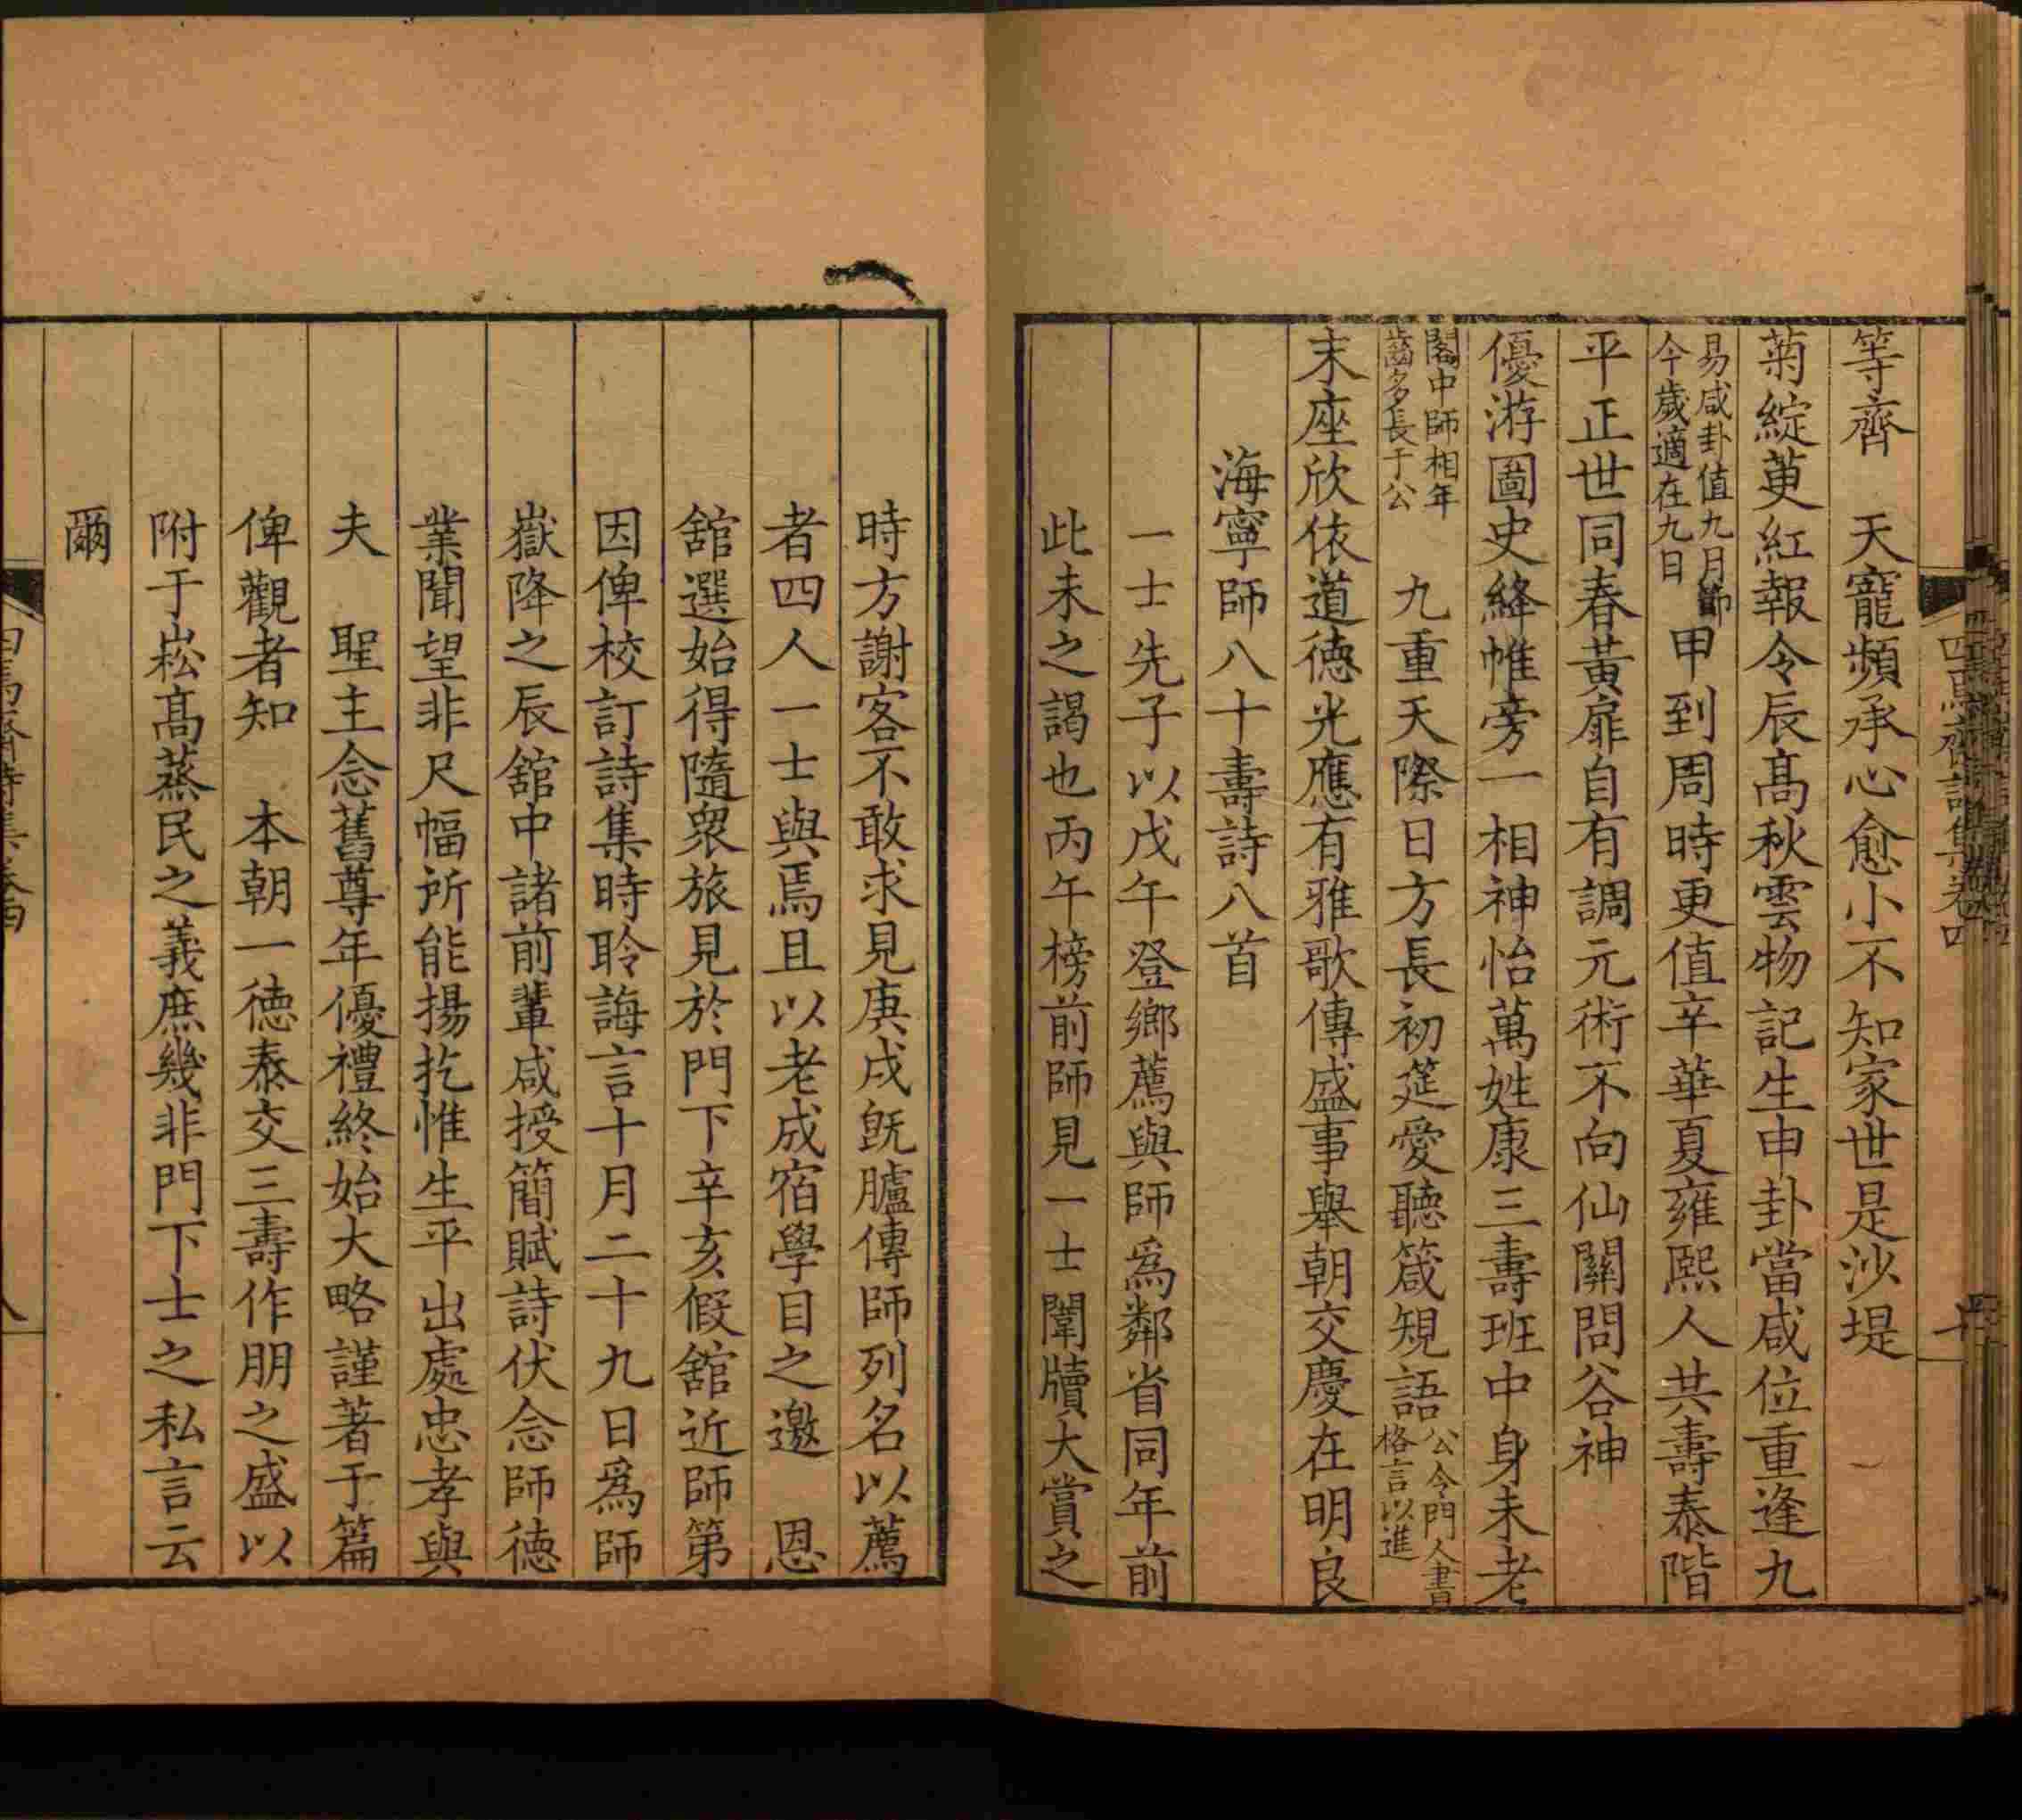 四焉齋詩集卷四
等齊　天寵頻承心愈小不知家世是沙堤
菊綻萸紅報令辰髙秋雲物記生申卦當咸位重逢九
易咸卦值九月節
今歲適在九日
甲到周時更值辛華夏雍熙人共壽泰階
平正世同春黃扉自有調元術不向仙關問谷神
優游圖史絳帷旁一相神怡萬姓康三壽班中身未老
閣中師相年
齒多長于公
九重天際日方長初筵愛聽箴規語
公令門人書
格言以進
末座欣依道德光應有雅歌傳盛事舉朝交慶在明良
海寧師八十壽詩八首
一士先子以戊午登鄉薦與師爲鄰省同年前
此未之謁也丙午榜前師見一士闈牘大賞之
時方謝客不敢求見庚戌旣臚傳師列名以薦
者四人一士與焉且以老成宿學目之邀　恩
舘選始得隨眾旅見於門下辛亥假舘近師第
因俾校訂詩集時聆誨言十月二十九日爲師
嶽降之辰舘中諸前輩咸授簡賦詩伏念師德
業聞望非尺幅所能揚扢惟生平出處忠孝與
夫　聖主念舊尊年優禮終始大略謹著于篇
俾觀者知　本朝一德泰交三壽作朋之盛以
附于崧髙蒸民之義庶幾非門下士之私言云
爾